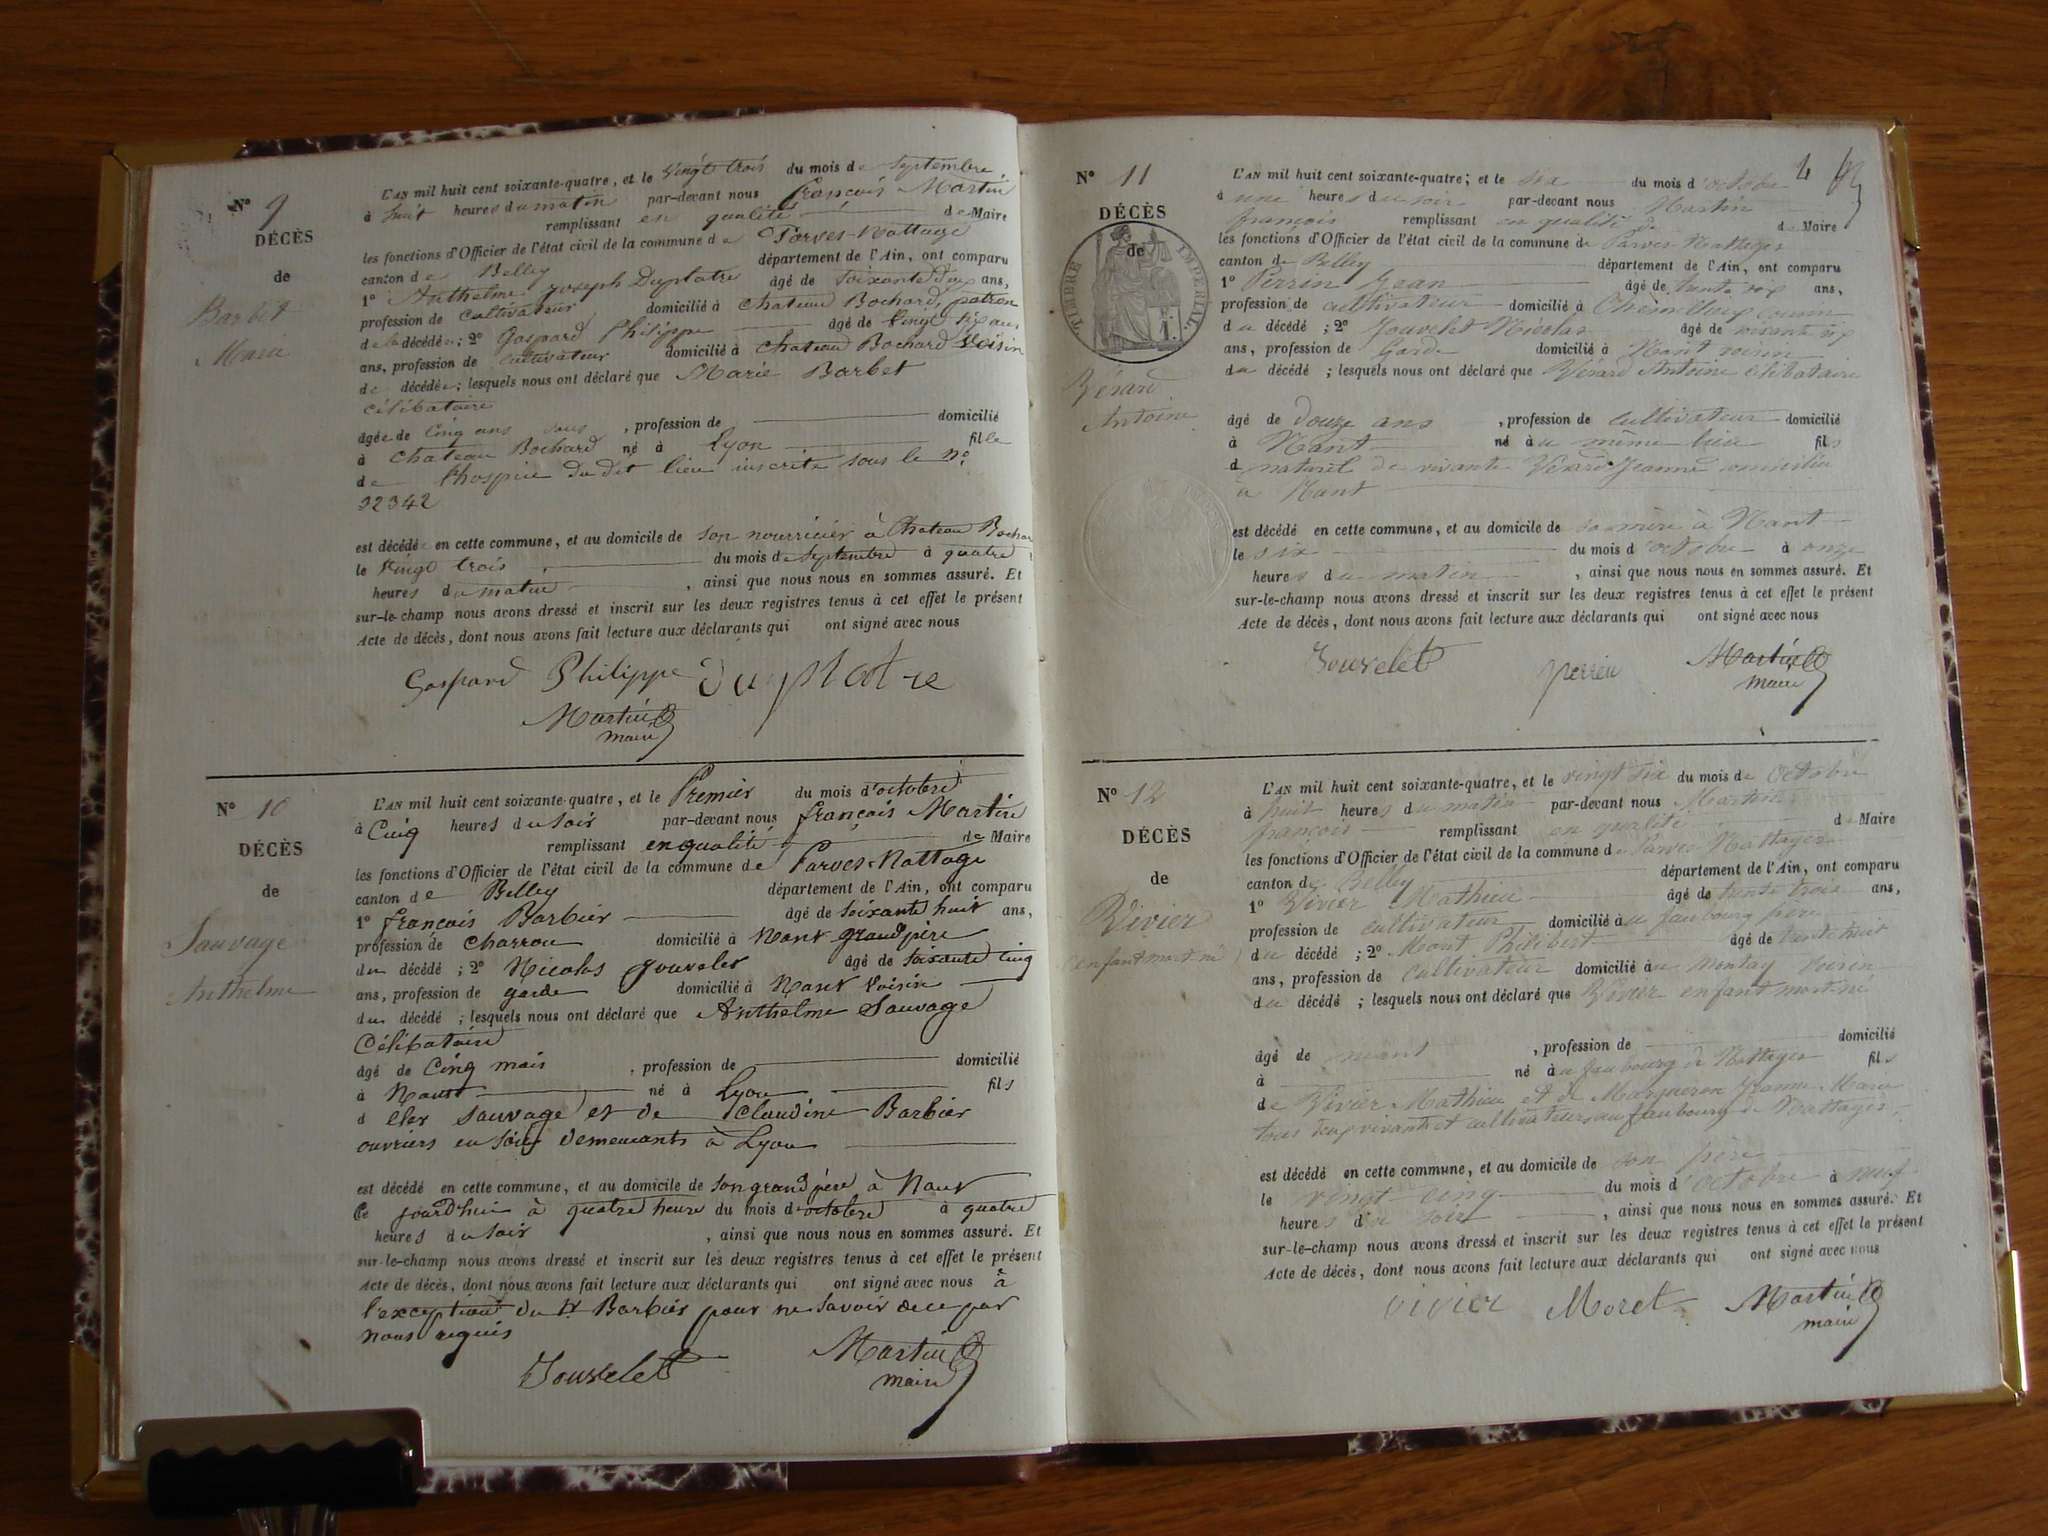 N° 9
DÉCÈS
de
Barbet
Marie
L'AN mil huit cent soixante-quatre, et le vingt trois du mois de septembre
à huit heures du matin par-devant nous françois Martin
remplissant en qualité de Maire
les fonctions d'Officier de l'état civil de la commune de Parves-Nattage
canton de Belley département de l'Ain, ont comparu
1° Anthelme joseph Duplatre âgé de soixante deux ans,
profession de cultivateur domicilié à chateau Bochard, patron
de la décédée; 2° Gaspard Philippe âgé de vingt six ans
ans, profession de cultivateur domicilié à chateau Bochard Voisin
de décédée; lesquels nous ont déclaré que Marie Barbet
célibataire
âgée de Cinq ans , profession de domicilié
à chateau Bochard né à Lyon fille
de l'hospice du dit lieu inscrite sous le N°
32342
est décédé en cette commune, et au domicile de son nourricier à Chateau Bochar
le Vingt trois du mois de septembre à quatre
heures du matin , ainsi que nous nous en sommes assuré. Et
sur-le-champ nous avons dressé et inscrit sur les deux registres tenus à cet effet le présent
Acte de décès, dont nous avons fait lecture aux déclarants qui ont signé avec nous
Gaspard Philippe duplatre
Martin
maire
N° 10
DÉCÈS
de
Sauvage
Anthelme
L'AN mil huit cent soixante-quatre, et le Premier du mois d'octobre
à Cinq heures du soir par-devant nous françois Martin
remplissant en qualité de Maire
les fonctions d'Officier de l'état civil de la commune de Parves-Nattage
canton de Belley département de l'Ain, ont comparu
1° françois Barbier âgé de soixante huit ans,
profession de charron domicilié à Nant grand père
du décédé ; 2° Nicolas jouvelet âgé de soixante cinq
ans, profession de garde domicilié à Nant Voisin
du décédé ; lesquels nous ont déclaré que Anthelme Sauvage
Célibataire
âgé de Cinq mois , profession de domicilié
à Nant né à Lyon fils
d sauvage et de Claudine Barbier
ouvriers en soie demeurants à Lyon
est décédé en cette commune, et au domicile de son grand père à Nant
Ce jourd'hui à quatre heure du mois d'octobre à quatre
heures du soir , ainsi que nous nous en sommes assuré. Et
sur-le-champ nous avons dressé et inscrit sur les deux registres tenus à cet effet le présent
Acte de décès, dont nous avons fait lecture aux déclarants qui ont signé avec nous à
l'exception du Sr Barbier pour ne savoir de ce par
nous requis
Jouvelet Martin
maire
4
N° 11
DÉCÈS
de
TIMBRE IMPÉRIAL
Vérard
Antoine
L'AN mil huit cent soixante-quatre; et le six du mois d'octobre
à une heures du soir par-devant nous Martin
françois remplissant en qualité de de Maire
les fonctions d'Officier de l'état civil de la commune de Parves Nattages
canton de Belley département de l'Ain, ont comparu
1° Perrin Jean âgé de trente six ans,
profession de cultivateur domicilié à
du décédé ; 2° Jouvelet Nicolas âgé de soixante six
ans, profession de Garde domicilié à Nant voisin
du décédé ; lesquels nous ont déclaré que Vérard Antoine célibataire
âgé de douze ans , profession de cultivateur domicilié
à Nant né au même lieu fils
d naturel de vivante Vérard Jeanne domiciliée
à Nant
est décédé en cette commune, et au domicile de sa mère à Nant
le six du mois d'octobre à onze
heures du matin , ainsi que nous nous en sommes assuré. Et
sur-le-champ nous avons dressé et inscrit sur les deux registres tenus à cet effet le présent
Acte de décès, dont nous avons fait lecture aux déclarants qui ont signé avec nous
Jouvelet perrin Martin
maire
N° 12
DÉCÈS
de
Vivier
enfant mort né
L'AN mil huit cent soixante-quatre, et le vingt six du mois de octobre
à huit heures du matin par-devant nous Martin
françois remplissant en qualité de Maire
les fonctions d'Officier de l'état civil de la commune de Parves Nattages
canton de Belley département de l'Ain, ont comparu
1° Vivier Mathieu âgé de trente trois ans,
profession de cultivateur domicilié au faubourg père
du décédé ; 2° Moret Philibert âgé de trente huit
ans, profession de cultivateur domicilié au Montay voisin
du décédé ; lesquels nous ont déclaré que Vivier enfant mort-né
âgé de néant , profession de domicilié
à né au faubourg de Nattages fils
de Vivier Mathieu et de Jeanne Marie
tous deux vivants et cultivateurs au faubourg de Nattages
est décédé en cette commune, et au domicile de son père
le vingt cinq du mois d'octobre à neuf
heures du soir , ainsi que nous nous en sommes assuré. Et
sur-le-champ nous avons dressé et inscrit sur les deux registres tenus à cet effet le présent
Acte de décès, dont nous avons fait lecture aux déclarants qui ont signé avec nous
vivier Moret Martin
maire